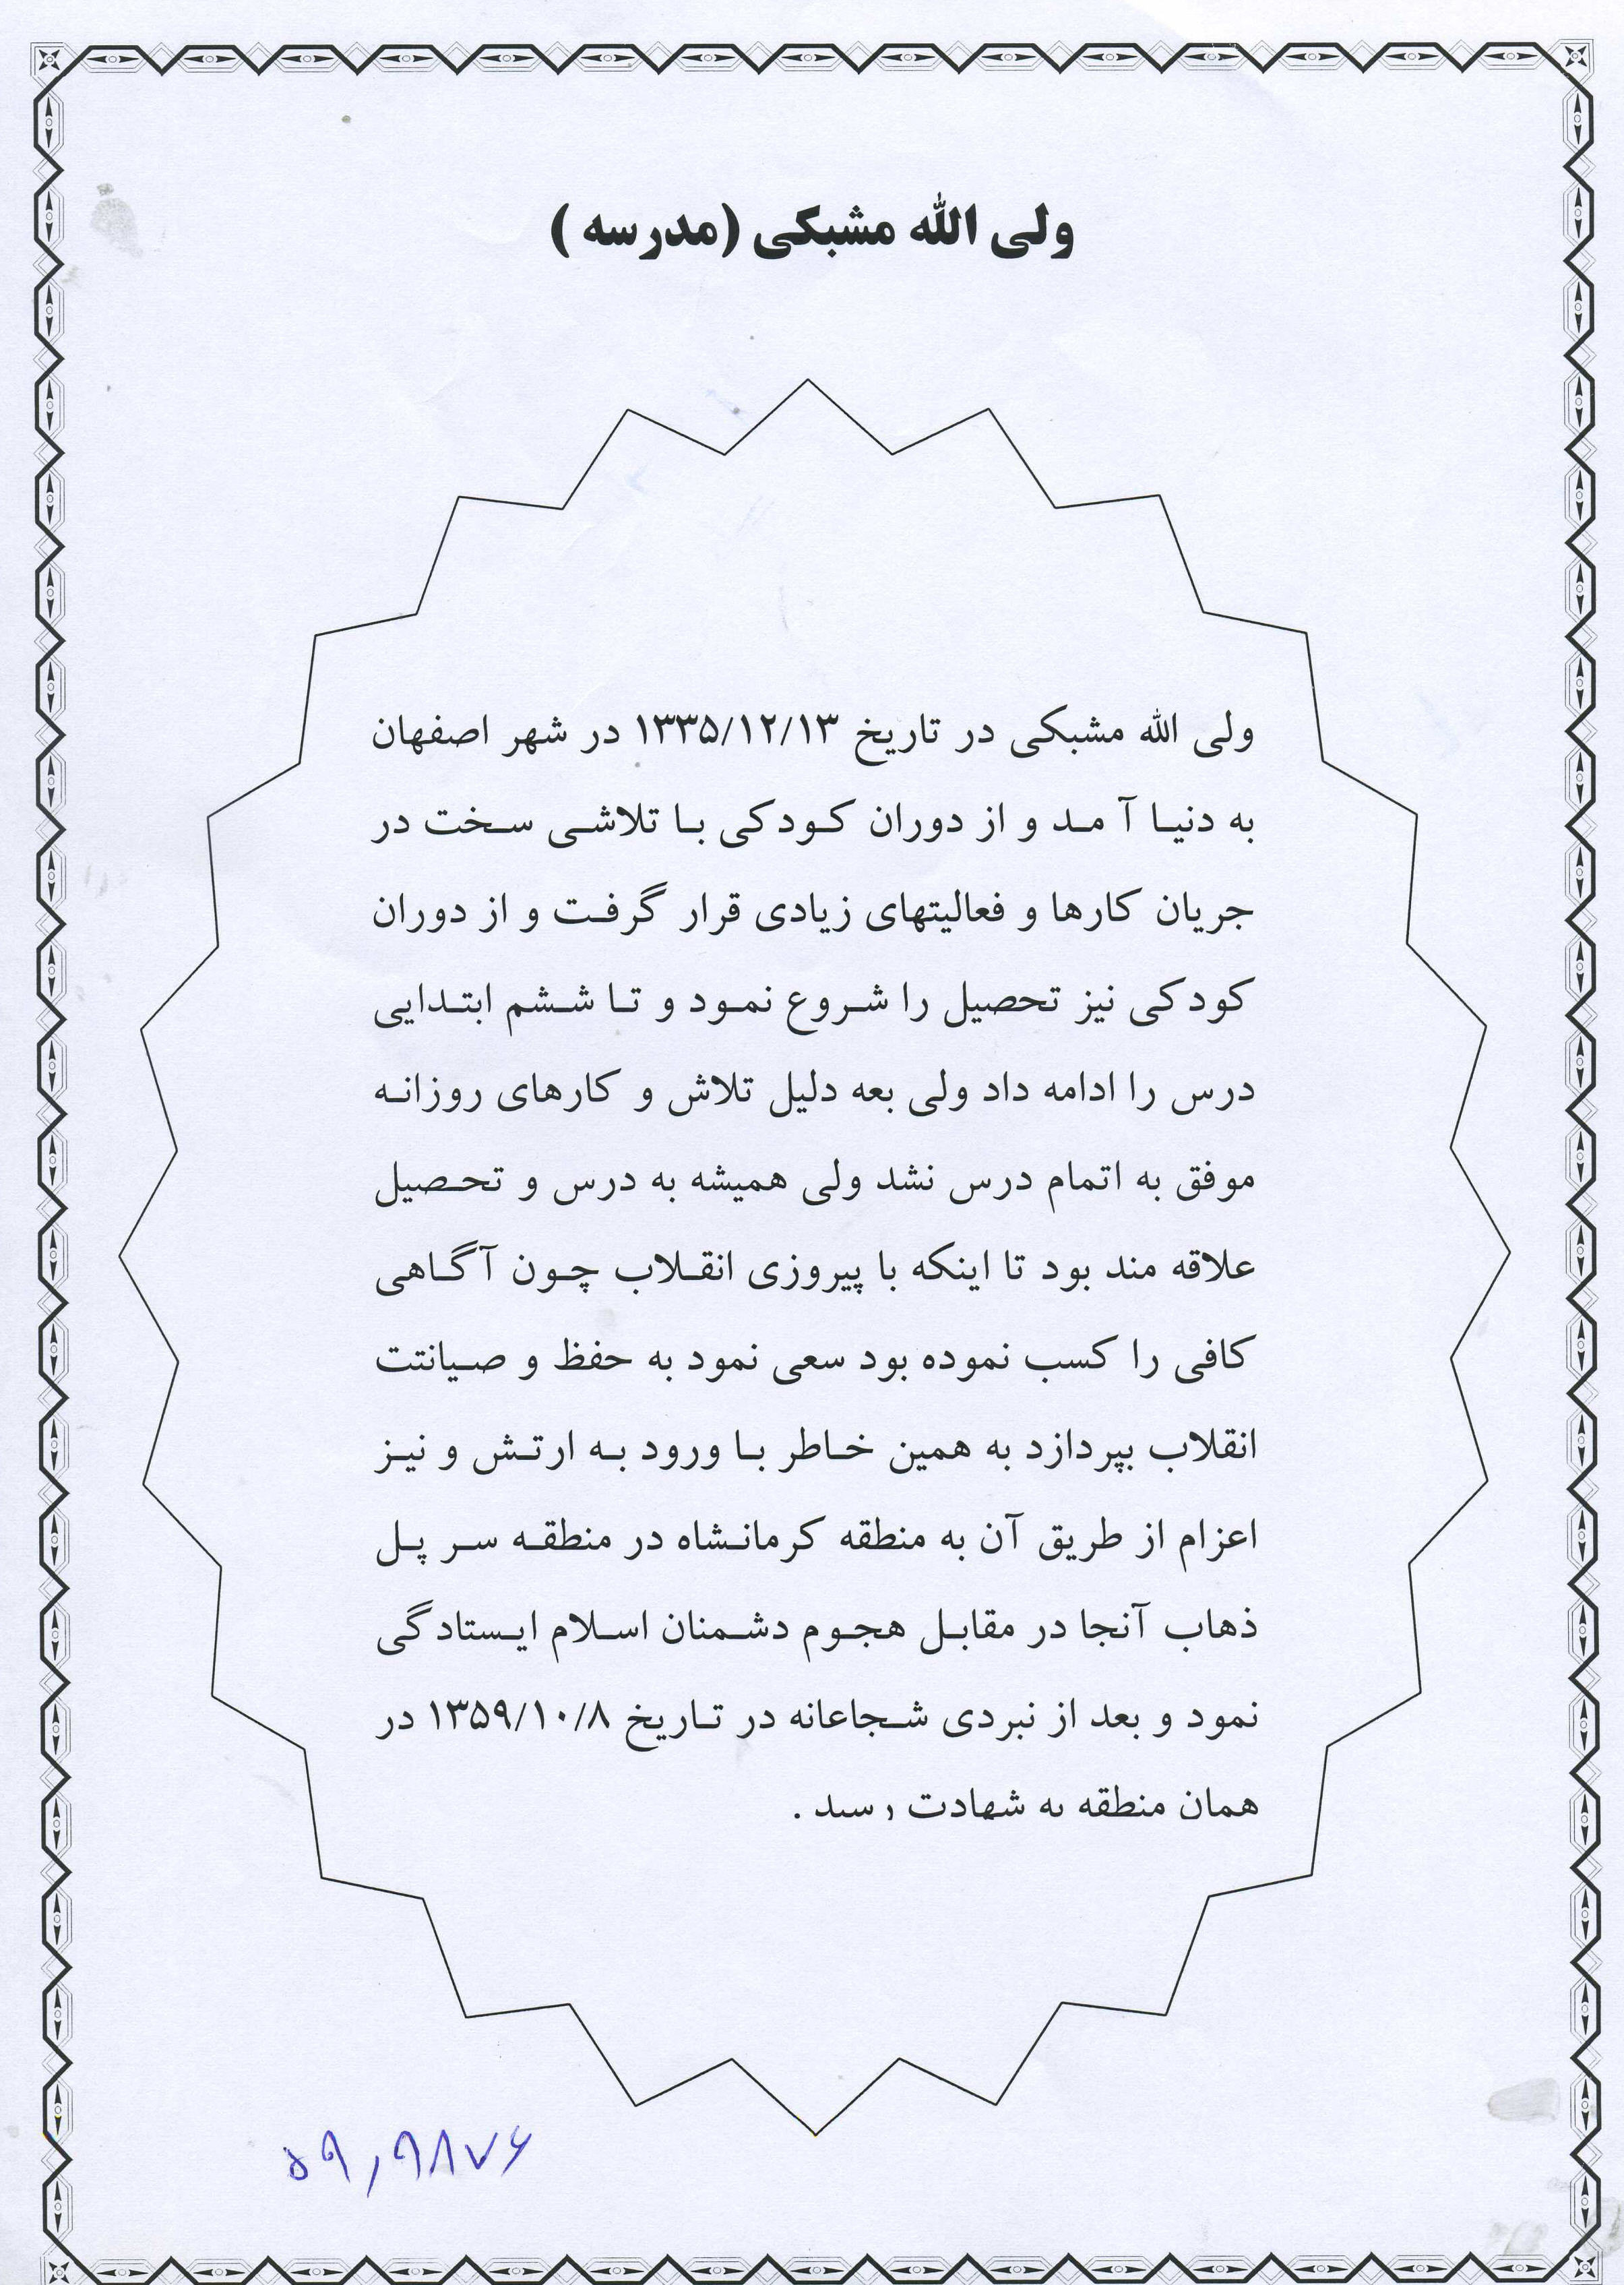 ولی الله مشبکی (مدرسه )
ولی الله مشبکی در تاریخ ۱۳۳۵/۱۲/۱۳ در شهر اصفهان
به دنیا آ مد و از دوران کودکی با تلاشی سخت در
جریان کارها و فعالیتهای زیادی قرار گرفت و از دوران
کودکی نیز تحصیل را شروع نمود و تا ششم ابتدایی
درس را ادامه داد ولی بعه دلیل تلاش و کارهای روزانه
موفق به اتمام درس نشد ولی همیشه به درس و تحصیل
علاقه مند بود تا اینکه با پیروزی انقلاب چون آگاهی
کافی را کسب نموده بود سعی نمود به حفظ و صیانتت
انقلاب بپردازد به همین خاطر با ورود به ارتش و نیز
اعزام از طریق آن به منطقه کرمانشاه در منطقه سر پل
ذهاب آنجا در مقابل هجوم دشمنان اسلام ایستادگی
نمود و بعد از نبردی شجاعانه در تاریخ ۱۳۵۹/۱۰/۸ در
همان منطقه به شهادت رسید .
۵۹٫۹۸۷۶